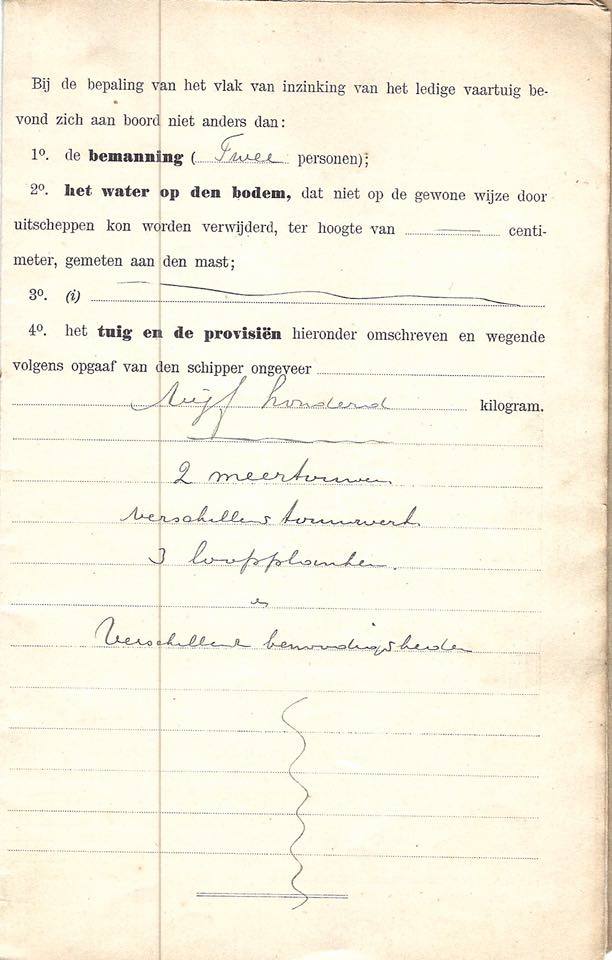 Bij de bepaling van het vlak van inzinking van het ledige vaartuig be-
vond zich aan boord niet anders dan:
1º. de bemanning ( Twee personen);
2º. het water op den bodem, dat niet op de gewone wijze door
uitscheppen kon worden verwijderd, ter hoogte van centi-
meter, gemeten aan den mast;
3º. (i)
4º. het tuig en de provisiën hieronder omschreven en wegende
volgens opgaaf van den schipper ongeveer
vijf honderd kilogram.
2 meertouwen
verschillend touwwerk
3 loopplanken.
en
Verschillende benoodigdheden